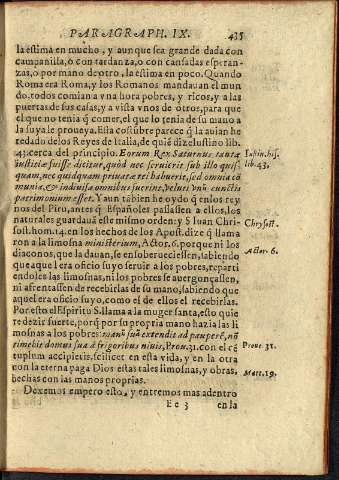 PARAGRAPH. IX. 435
la estima en mucho, y aunque sea grande dada con
campanilla, ò con tardanza, o con cansadas esperan-
zas, o por mano de otro, la estima en poco. Quando
Roma era Roma, y los Romanos mandauan el mun
do, todos comian a vna hora pobres, y ricos, y a las
puertas de sus casas, y a vista vnos de otros, para que
el que no tenia q̃ comer, el que lo tenia de su mano a
la suya le proueya. Esta costũbre parece q̃ la auian he
redado de los Reyes de Italia, de quiẽ dize Iustino lib.
43. cerca del principio. Eorum Rex Saturnus tantæ Iustin. his.
iustitiæ fuisse dicitur, quòd nec seruierit sub illo quis- lib. 43.
quam, nec quidquam priuatæ rei habuerit, sed omnia cõ
munia, & indiuisa omnibus fuerint, velut vnũ cunctis
patrimonium esset. Y aun tãbien he oydo q̃ en los rey
nos del Piru, antes q̃ Españoles passassen a ellos, los
naturales guardauã este mismo orden: y S. Iuan Chri-
sost. hom. 14. en los hechos de los Apost. dize q̃ llama Chrysost.
ron a la limosna ministerium, Actor. 6. porque ni los
diaconos, que la dauan, se ensoberueciessen, sabiendo Actor. 6.
que aquel era oficio suyo seruir a los pobres, reparti
endoles las limosnas, ni los pobres se auergonçassen,
ni afrentassen de recebirlas de su mano, sabiendo que
aquel era oficio suyo, como el de ellos el recebirlas.
Por esto el Espiritu S. llama a la muger santa, esto quie
re dezir fuerte, porq̃ por su propria mano hazia las li
mosnas a los pobres: manũ suã extendit ad pauperẽ, nõ
timebit domui suæ à frigoribus niuis, Prou. 31. con el cẽ Proue. 31.
tuplum accipietis, scilicet en esta vida, y en la otra
con la eterna paga Dios estas tales limosnas, y obras, Matt. 19.
hechas con las manos proprias.
Dexemos empero esto, y entremos mas adentro
Ee 3 en la